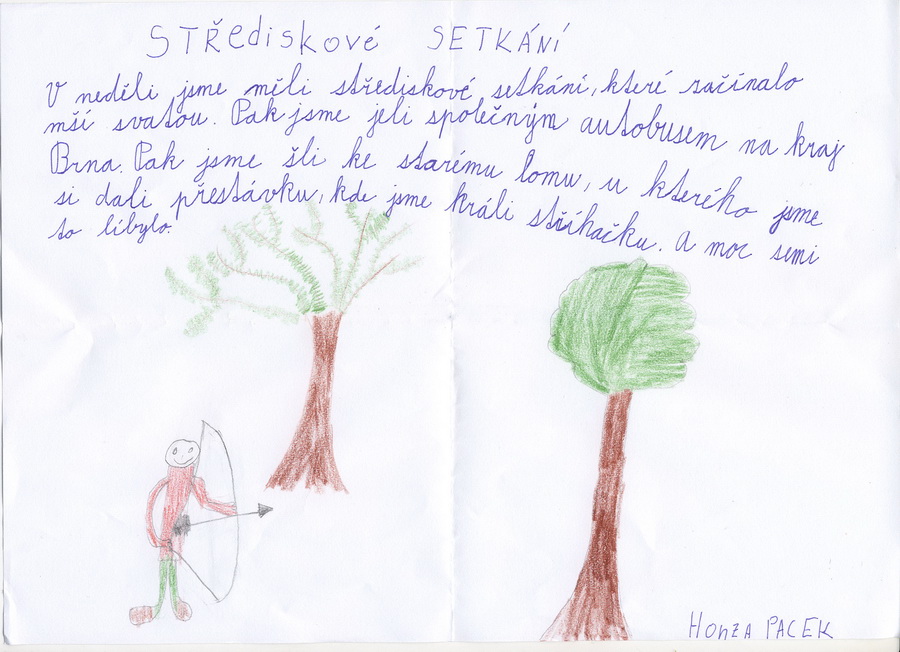 STŘediskové SETKÁNÍ
V neděli jsme měli střediskové setkání, které začínalo
mší svatou. Pak jsme jeli společným autobusem na kraj
Brna. Pak jsme šli ke starému lomu, u kterého jsme
si dali přestávku, kde jsme hráli stříhačku. A moc semi
to líbylo.
HonZA PACEK